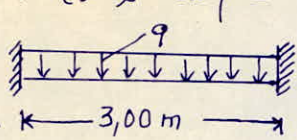 q
3,00 m